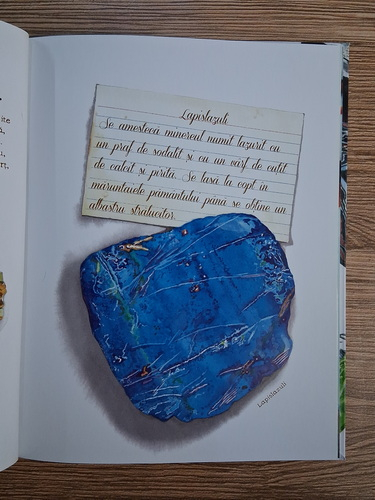 Lapislazuli
Se amestecă minereul numit lazurit cu
un praf de sodalit și cu un vârf de cuțit
de calcit și pirită. Se lasă la copt în
măruntaiele pământului până se obține un
albastru strălucitor.
Lapislazuli
ite